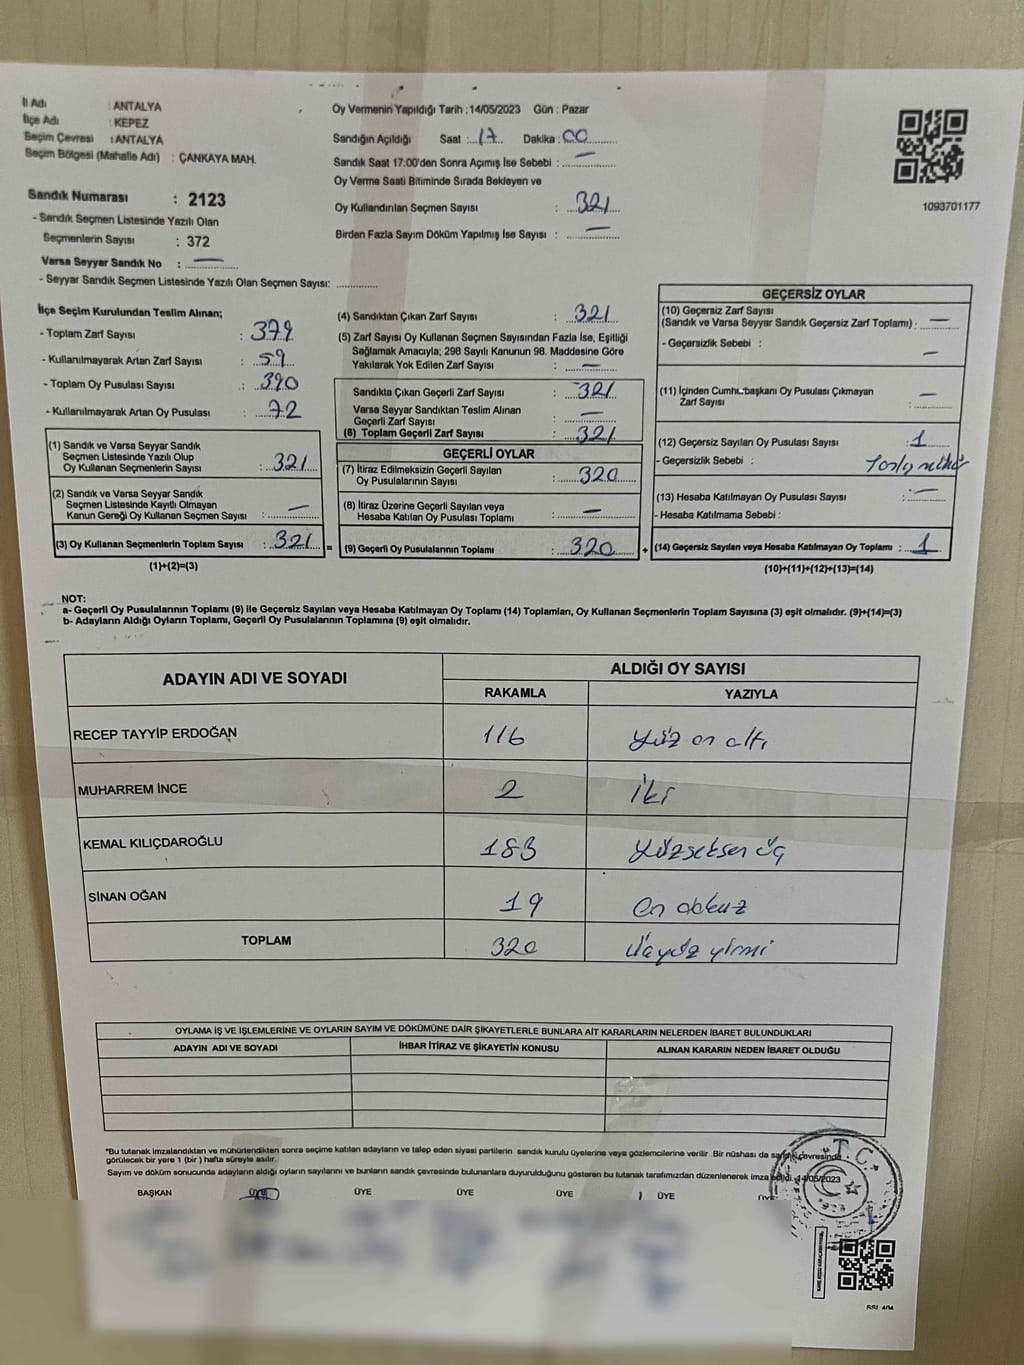 İl Adı : ANTALYA
İlçe Adı : KEPEZ
Seçim Çevresi : ANTALYA
Seçim Bölgesi (Mahalle Adı) : ÇANKAYA MAH.
Sandık Numarası : 2123
- Sandık Seçmen Listesinde Yazılı Olan
Seçmenlerin Sayısı : 372
Varsa Seyyar Sandık No : —
- Seyyar Sandık Seçmen Listesinde Yazılı Olan Seçmen Sayısı: ............
Oy Vermenin Yapıldığı Tarih : 14/05/2023 Gün : Pazar
Sandığın Açıldığı Saat : 17 Dakika : 00
Sandık Saat 17:00'den Sonra Açımış İse Sebebi : —
Oy Verme Saati Bitiminde Sırada Bekleyen ve
Oy Kullandırılan Seçmen Sayısı : 321
Birden Fazla Sayım Döküm Yapılmış İse Sayısı : —
1093701177
İlçe Seçim Kurulundan Teslim Alınan;
- Toplam Zarf Sayısı : 379
- Kullanılmayarak Artan Zarf Sayısı : 59
- Toplam Oy Pusulası Sayısı : 390
- Kullanılmayarak Artan Oy Pusulası : 72
(1) Sandık ve Varsa Seyyar Sandık
Seçmen Listesinde Yazılı Olup
Oy Kullanan Seçmenlerin Sayısı : 321
(2) Sandık ve Varsa Seyyar Sandık
Seçmen Listesinde Kayıtlı Olmayan
Kanun Gereği Oy Kullanan Seçmen Sayısı : —
(3) Oy Kullanan Seçmenlerin Toplam Sayısı : 321 =
(1)+(2)=(3)
(4) Sandıktan Çıkan Zarf Sayısı : 321
(5) Zarf Sayısı Oy Kullanan Seçmen Sayısından Fazla İse, Eşitliği
Sağlamak Amacıyla; 298 Sayılı Kanunun 98. Maddesine Göre
Yakılarak Yok Edilen Zarf Sayısı : —
Sandıkta Çıkan Geçerli Zarf Sayısı : 321
Varsa Seyyar Sandıktan Teslim Alınan
Geçerli Zarf Sayısı : —
(6) Toplam Geçerli Zarf Sayısı : 321
GEÇERLİ OYLAR
(7) İtiraz Edilmeksizin Geçerli Sayılan
Oy Pusulalarının Sayısı : 320
(8) İtiraz Üzerine Geçerli Sayılan veya
Hesaba Katılan Oy Pusulası Toplamı : —
(9) Geçerli Oy Pusulalarının Toplamı : 320 +
GEÇERSİZ OYLAR
(10) Geçersiz Zarf Sayısı
(Sandık ve Varsa Seyyar Sandık Geçersiz Zarf Toplamı) : —
- Geçersizlik Sebebi : —
(11) İçinden Cumhurbaşkanı Oy Pusulası Çıkmayan
Zarf Sayısı : —
(12) Geçersiz Sayılan Oy Pusulası Sayısı : 1
- Geçersizlik Sebebi :
(13) Hesaba Katılmayan Oy Pusulası Sayısı : —
- Hesaba Katılmama Sebebi :
(14) Geçersiz Sayılan veya Hesaba Katılmayan Oy Toplamı : 1
(10)+(11)+(12)+(13)=(14)
NOT:
a- Geçerli Oy Pusulalarının Toplamı (9) ile Geçersiz Sayılan veya Hesaba Katılmayan Oy Toplamı (14) Toplamları, Oy Kullanan Seçmenlerin Toplam Sayısına (3) eşit olmalıdır. (9)+(14)=(3)
b- Adayların Aldığı Oyların Toplamı, Geçerli Oy Pusulalarının Toplamına (9) eşit olmalıdır.
ADAYIN ADI VE SOYADI ALDIĞI OY SAYISI
RAKAMLA YAZIYLA
RECEP TAYYİP ERDOĞAN 116 Yüz on altı
MUHARREM İNCE 2 İki
KEMAL KILIÇDAROĞLU 183 Yüzseksen üç
SİNAN OĞAN 19 On dokuz
TOPLAM 320 Üçyüz yirmi
OYLAMA İŞ VE İŞLEMLERİNE VE OYLARIN SAYIM VE DÖKÜMÜNE DAİR ŞİKAYETLERLE BUNLARA AİT KARARLARIN NELERDEN İBARET BULUNDUKLARI
ADAYIN ADI VE SOYADI İHBAR İTİRAZ VE ŞİKAYETİN KONUSU ALINAN KARARIN NEDEN İBARET OLDUĞU
"Bu tutanak imzalandıktan ve mühürlendikten sonra seçime katılan adayların ve talep eden siyasi partilerin sandık kurulu üyelerine veya gözlemcilerine verilir. Bir nüshası da sandık çevresinde
görülecek bir yere 1 (bir ) hafta süreyle asılır.
Sayım ve döküm sonucunda adayların aldığı oyların sayılarını ve bunların sandık çevresinde bulunanlara duyurulduğunu gösteren bu tutanak tarafımızdan düzenlenerek imza edildi. 14/05/2023
BAŞKAN ÜYE ÜYE ÜYE ÜYE ÜYE ÜYE
T.C.